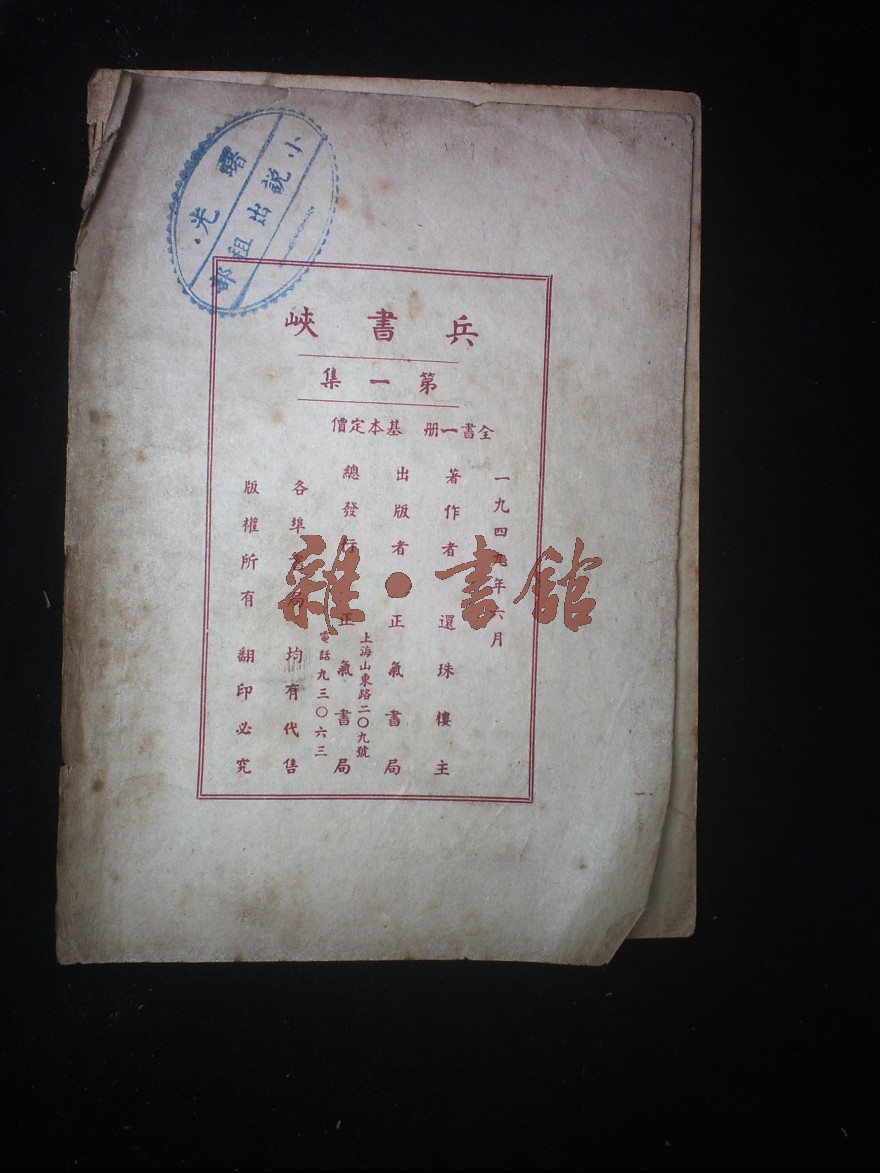 曙光
小說出租部
兵書峽
第一集
全書一冊 基本定價
一九四九年六月
著作者 還珠樓主
出版者 正氣書局
上海山東路二〇九號
總發行 正氣書局
電話九三〇六三
各埠書局 均有代售
版權所有 翻印必究
雜·書館